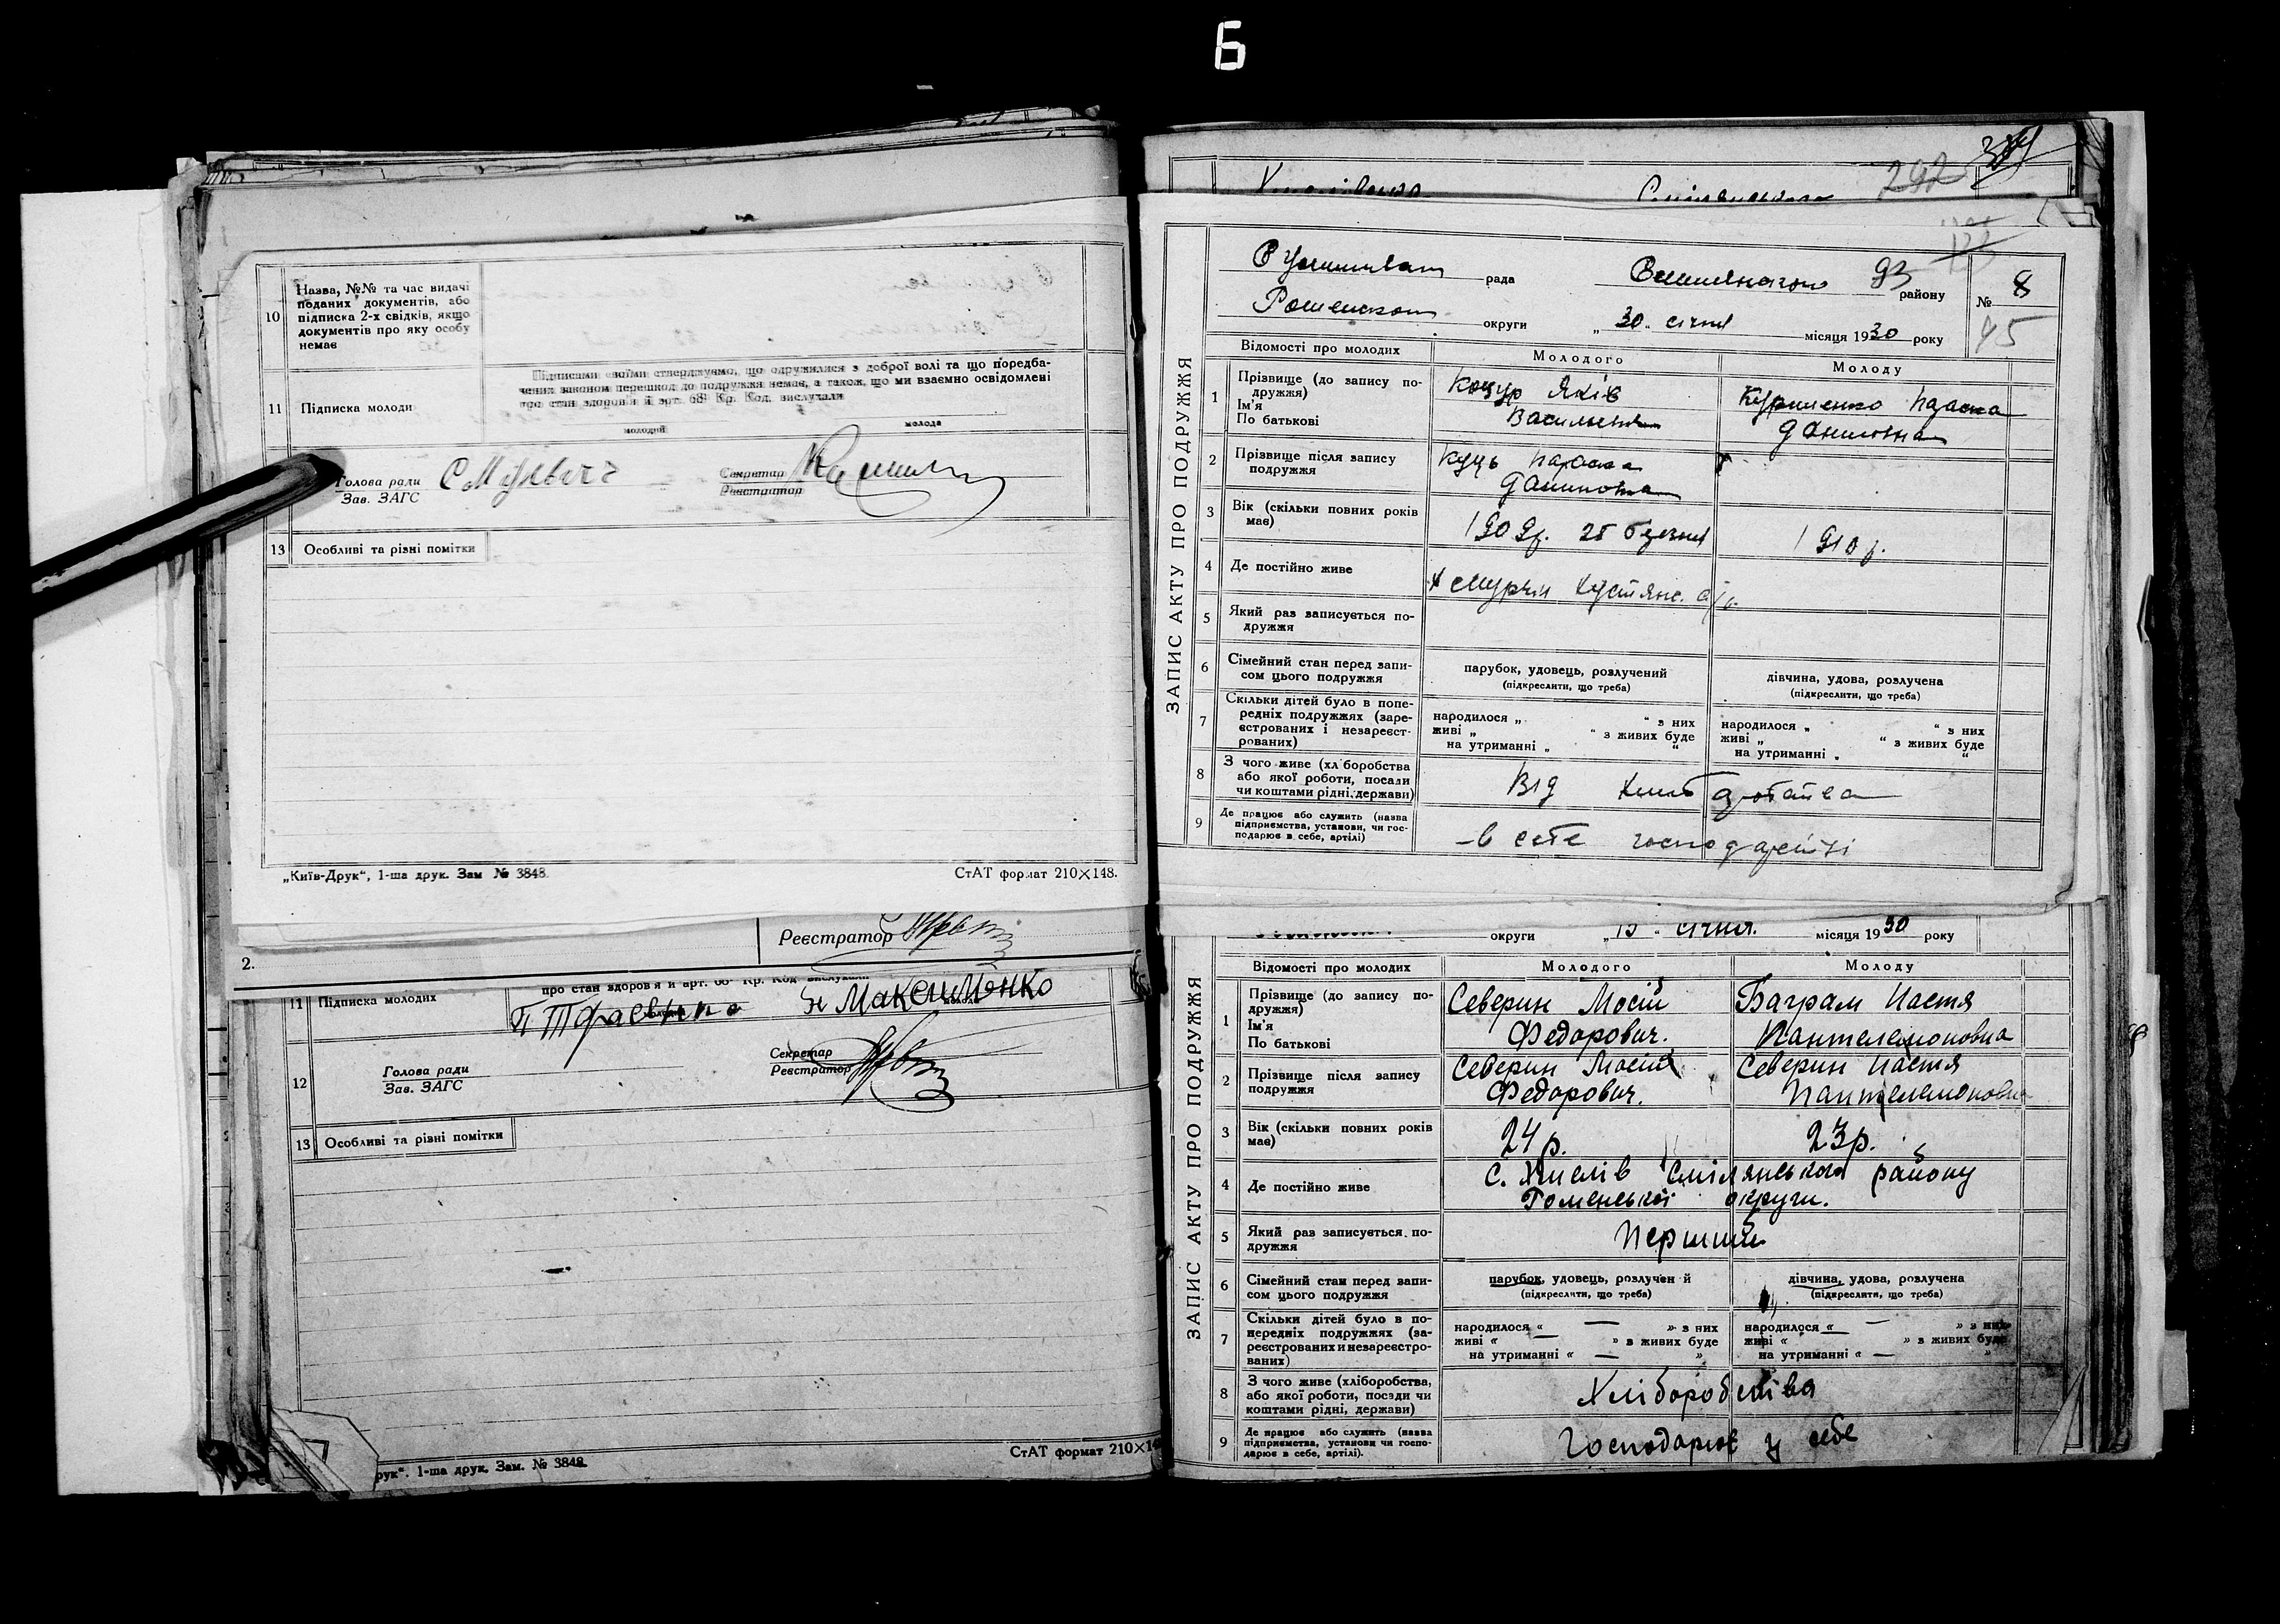 Б
10
Назва, №№ та час видачі
поданих документів, або
підписка 2-х свідків, якщо
документів про яку особу
немає
11
Підписка молоди
Підписами своїми стверджуємо, що одружилися з доброї волі та що передба-
чених законом перешкод до подружжя немає, а також, що ми взаємно освідомлені
про стан здоров'я й арт. 68 Кр. Код. вислухали
молодий
молода
Голова ради
Зав. ЗАГС
Секретар
Реєстратор
13
Особливі та різні помітки
„Київ-Друк“, 1-ша друк. Зам № 3848.
СтАТ формат 210×148.
Реєстратор
2.
11
Підписка молодих
про стан здоров'я й арт. 68 Кр. Код вислухали
Н Максименко
12
Голова ради
Зав. ЗАГС
Секретар
Реєстратор
13
Особливі та різні помітки
рук“. 1-ша друк. Зам. № 3848.
СтАТ формат 210×14
292
ЗАПИС АКТУ ПРО ПОДРУЖЖЯ
рада
93
району
№ 8
45
округи
„ 30 „ січня
місяця 1930 року
Відомості про молодих
Молодого
Молоду
1
Прізвище (до запису по-
дружжя)
Ім'я
По батькові
Коцур Яків
2
Прізвище після запису
подружжя
Куць Параска
3
Вік (скільки повних років
має)
1909р. 25 березня
1910р.
4
Де постійно живе
5
Який раз записується по-
дружжя
6
Сімейний стан перед запи-
сом цього подружжя
парубок, удовець, розлучений
(підкреслити, що треба)
дівчина, удова, розлучена
(підкреслити, що треба)
7
Скільки дітей було в попе-
редніх подружжях (заре-
єстрованих і незареєст-
рованих)
народилося „ “ з них
живі „ “ з живих буде
на утриманні „ “
народилося „ “ з них
живі „ “ з живих буде
на утриманні „ “
8
З чого живе (хліборобства
або якої роботи, посади
чи коштами рідні, держави)
Від
9
Де працює або служить (назва
підприємства, установи, чи гос-
подарює в себе, артілі)
- в себе
ЗАПИС АКТУ ПРО ПОДРУЖЖЯ
округи
„ 15 „ січня.
місяця 1930 року
Відомості про молодих
Молодого
Молоду
1
Прізвище (до запису по-
дружжя)
Ім'я
По батькові
Северин Мосій
Федорович.
Баграм Настя
Пантелемоновна
2
Прізвище після запису
подружжя
Северин Мосій
Федорович.
Северин Настя
Пантелемоновна
3
Вік (скільки повних років
має)
24р.
23р.
4
Де постійно живе
С. Хмелів Смілянського району
Роменської округи.
5
Який раз записується по-
дружжя
Перший
6
Сімейний стан перед запи-
сом цього подружжя
парубок, удовець, розлучен й
(підкреслити, що треба)
дівчина, удова, розлучена
(підкреслити, що треба)
7
Скільки дітей було в по-
передніх подружжях (за-
реєстрованих и незареєстро-
ваних)
народилося « — » з них
живі « — » з живих буде
на утриманні « — »
народилося « — » з них
живі « — » з живих буде
на утриманні « — »
8
З чого живе (хліборобства,
або якої роботи, посади чи
коштами рідні, держави)
Хліборобства
9
Де працює або служить (назва
підприємства, установи чи госпо-
дарює в себе, артілі).
Господарює у себе